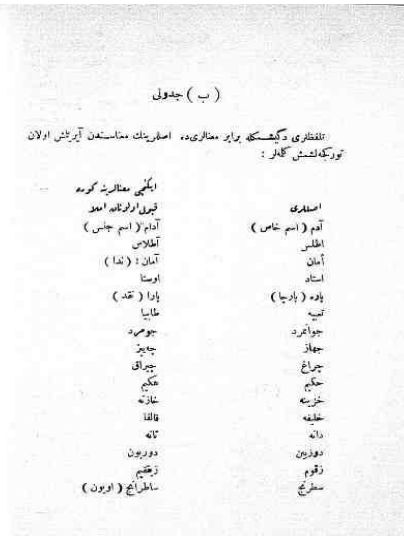 ( ب ) جدولی
تلفظلری دگیشمكله برابر معنالری‌ده اصللرینك معناسندن آیرلمش اولان
توركجه‌لشمش كلمه‌لر :
اصللری	ایكنجی معنالرینه كوره
قبول اولونان املا
آدم ( اسم خاص )	آدام ( اسم جنس )
اطلس	آطلاس
أمان	آمان : ( ندا )
استاد	اوستا
پاره ( پارچا )	پارا ( نقد )
تعبیه	طابیا
جوانمرد	جومرد
جهاز	چه‌یز
چراغ	چیراق
حكیم	هكیم
خزینه	خازنه
خلیفه	قالفا
دانه	تانه
دوربین	دوربون
زقوم	زققیم
سطرنج	ساطرانج ( اویون )